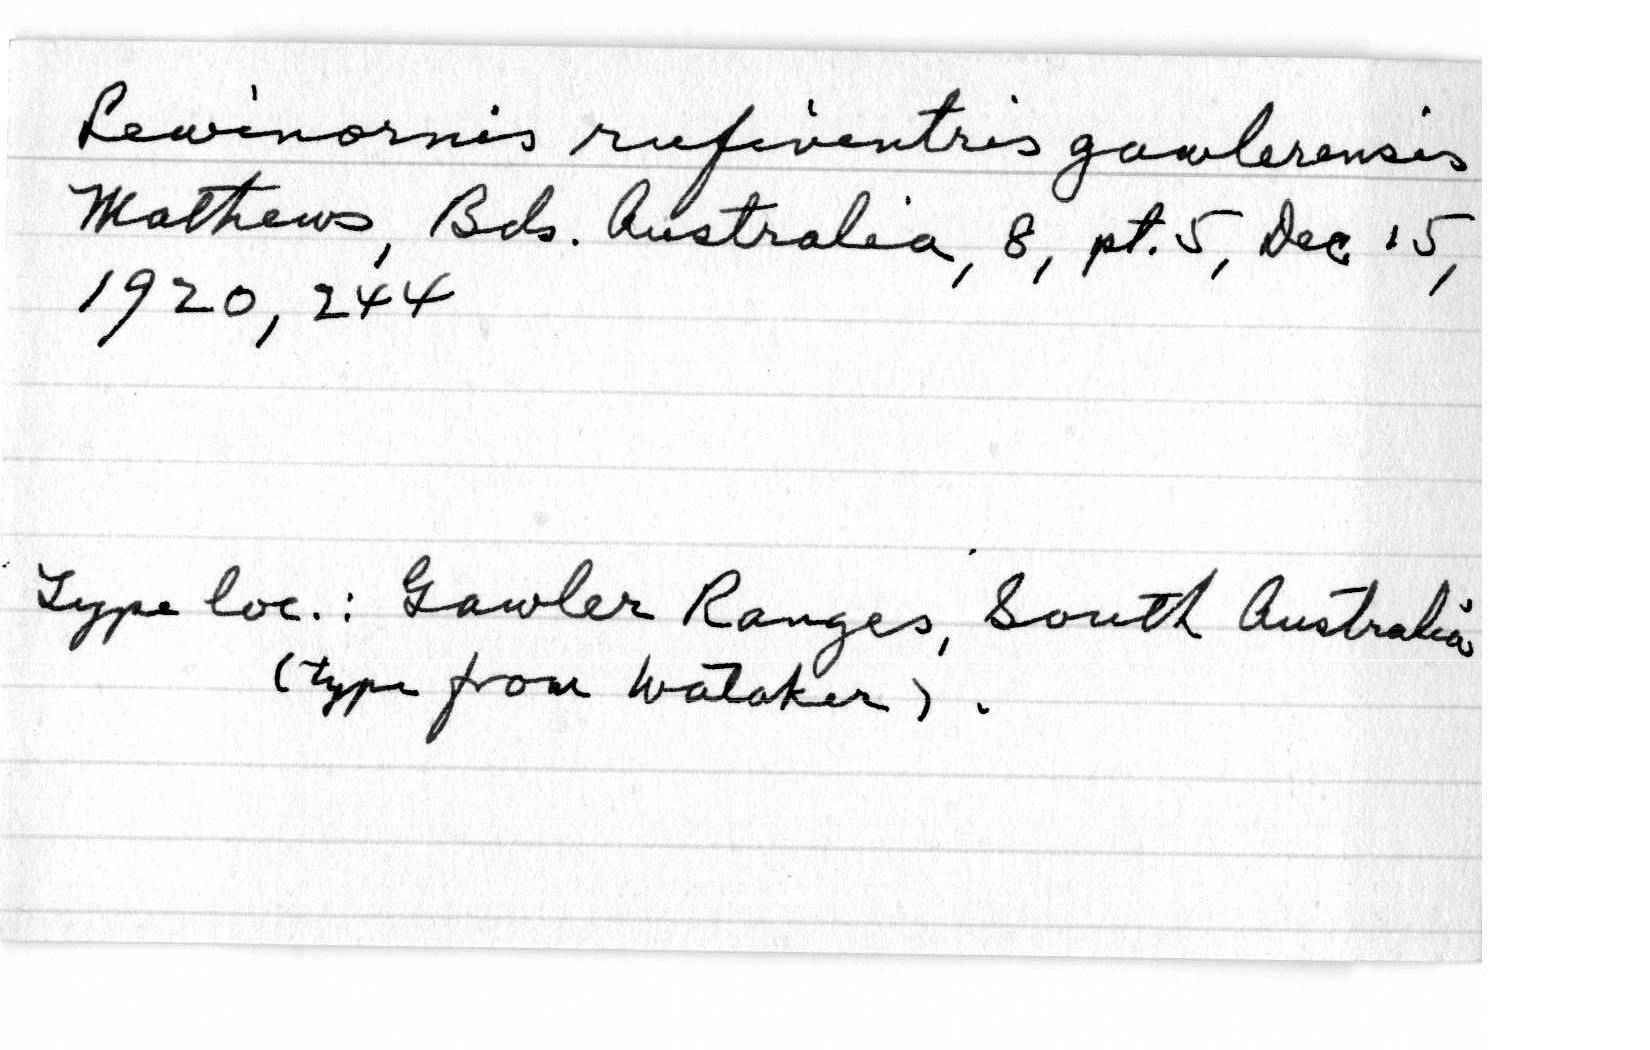 Lewinornis rufiventris gawlerensis
Mathews, Bds. Australia, 8, pt. 5, Dec 15,
1920, 244
Type loc.: Gawler Ranges, South Australia
(type from Wataker).